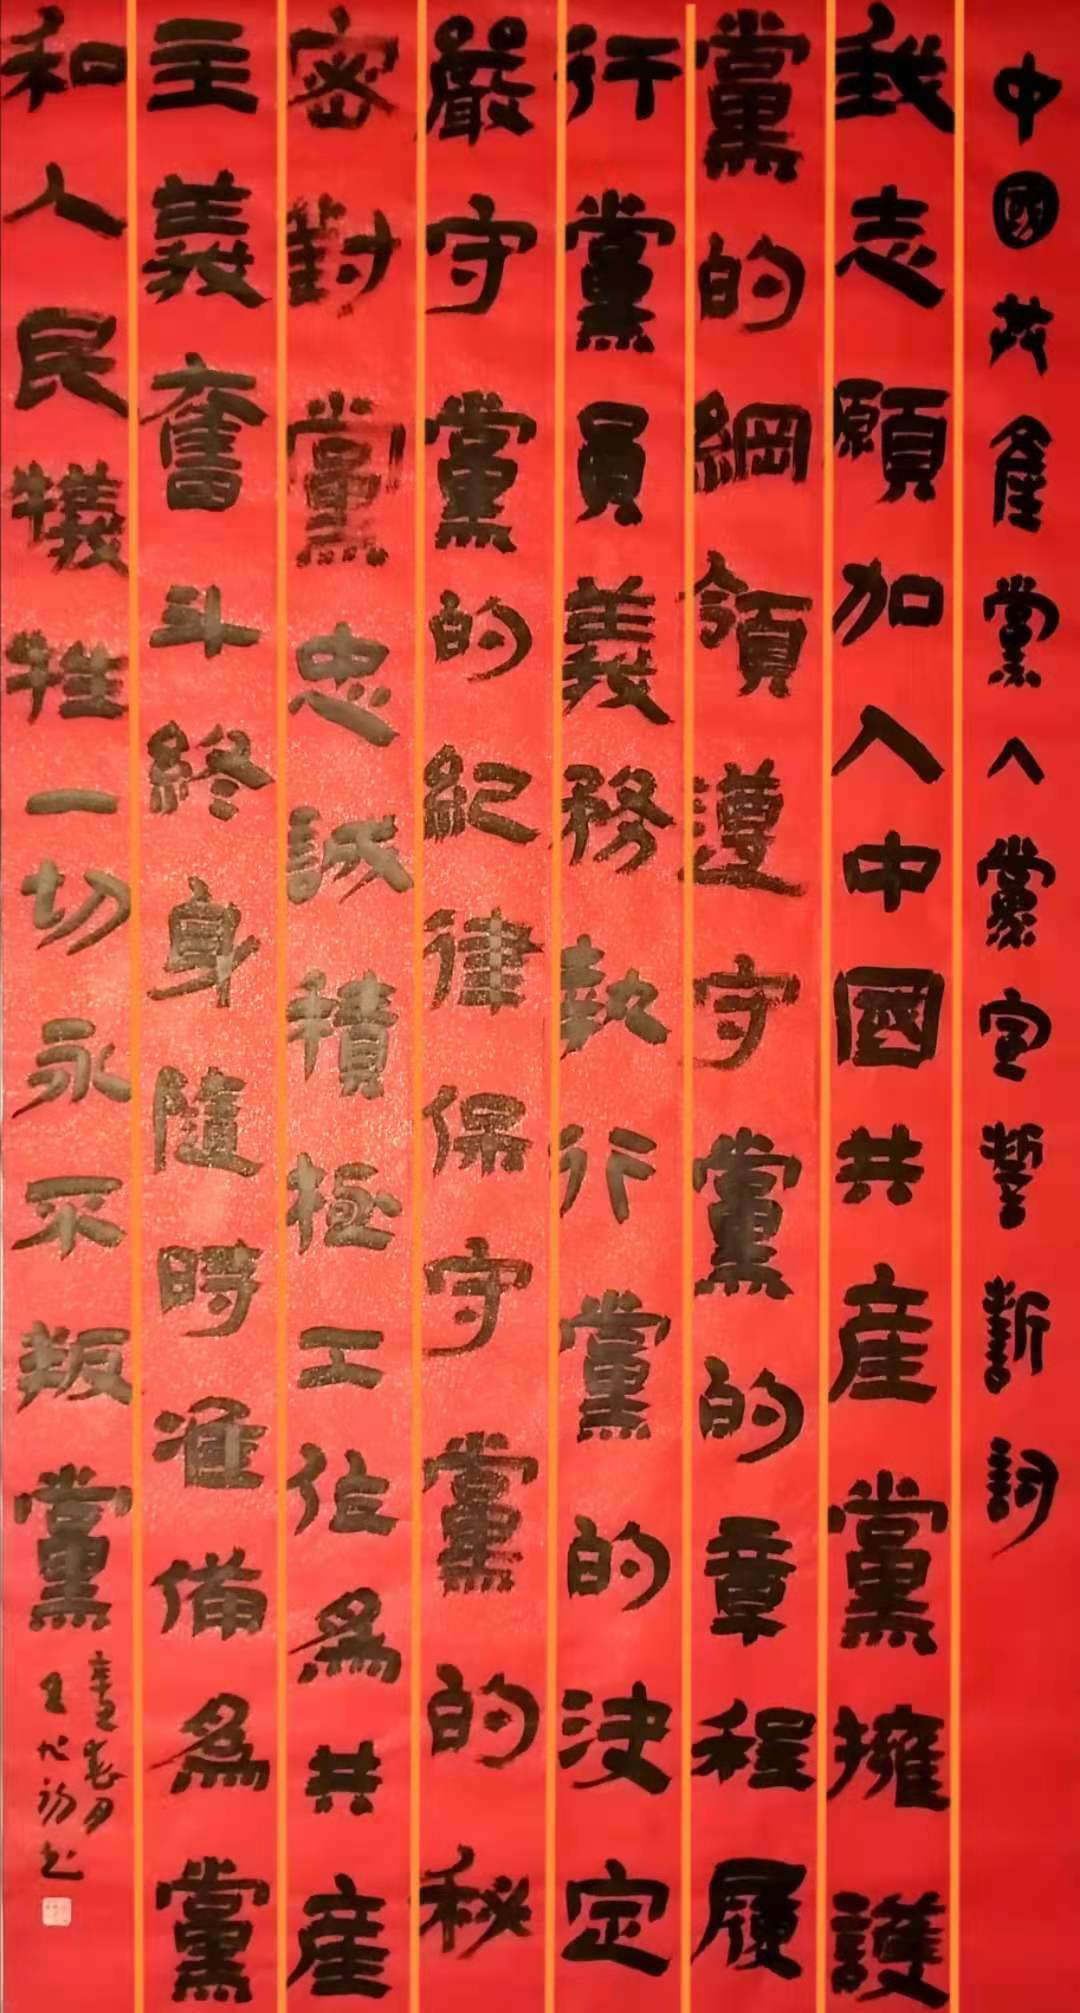 中國共産黨入黨宣誓新詞
我志願加入中國共産黨擁護
黨的綱領遵守黨的章程履
行黨員義務執行黨的決定
嚴守黨的紀律保守黨的秘
密對黨忠誠積極工作爲共産
主義奮斗終身隨時准備爲黨
和人民犧牲一切永不叛黨
辛丑春月
王書